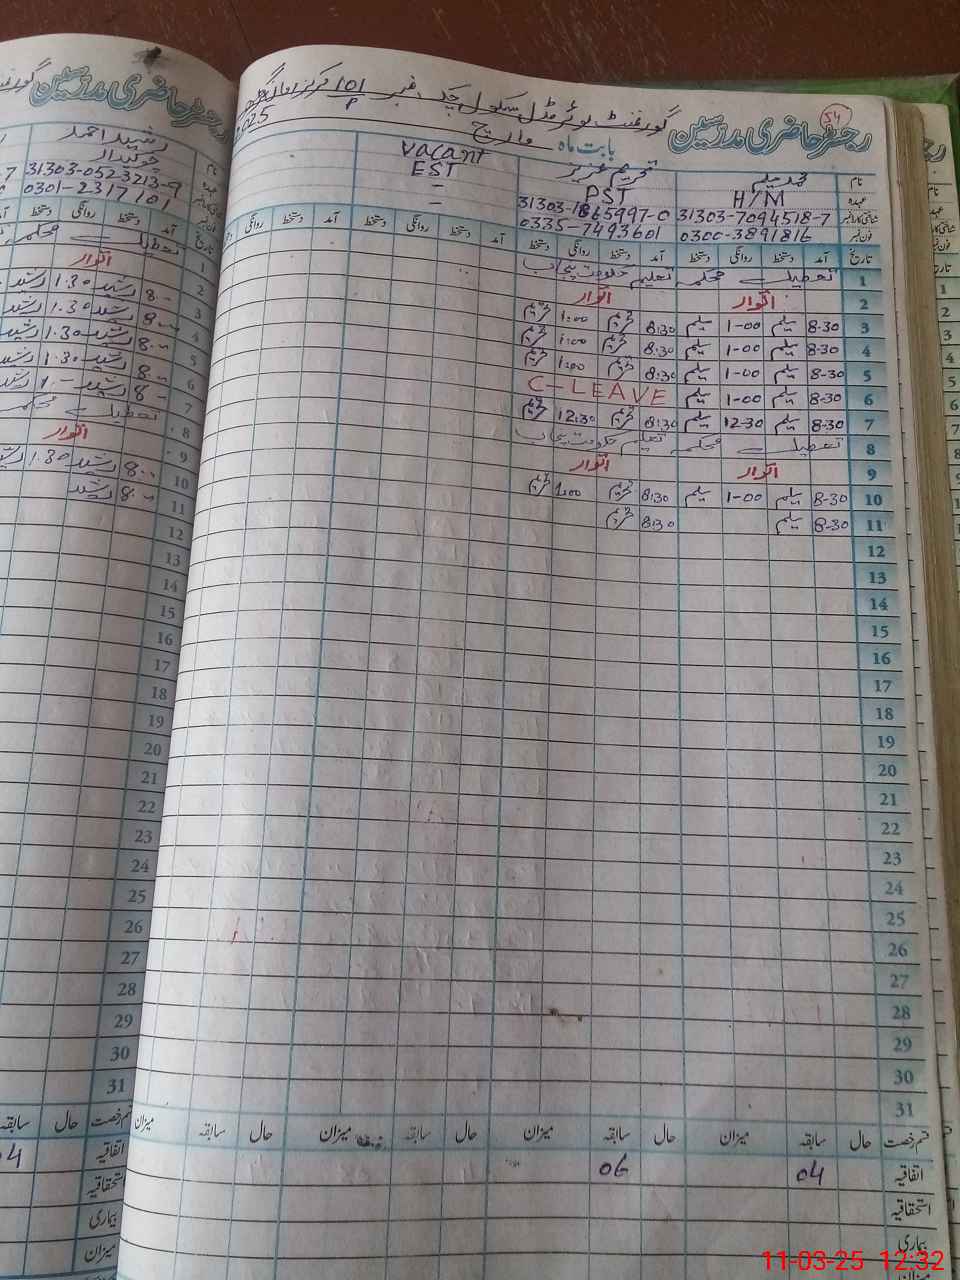 رجسٹر حاضری مدرسین
54
گورنمنٹ بوائز مڈل سکول چک نمبر 101/P مرکز
بابت ماہ مارچ 2025
نام محمد سلیم تحریم عزیز vacant
عہدہ H/M PST EST
شناختی کارڈ نمبر 31303-7094518-7 31303-1865997-0 -
فون نمبر 0300-3891816 0335-7493601 -
تاریخ آمد دستخط روانگی دستخط آمد دستخط روانگی دستخط آمد دستخط روانگی دستخط آمد دستخط روانگی
1 تعطیل محکمہ تعلیم حکومت پنجاب
2 اتوار اتوار
3 8-30 سلیم 1-00 سلیم 8:30 تحریم 1:00 تحریم
4 8-30 سلیم 1-00 سلیم 8:30 تحریم 1:00 تحریم
5 8-30 سلیم 1-00 سلیم 8:30 تحریم 1:00 تحریم
6 8-30 سلیم 1-00 سلیم C-LEAVE
7 8-30 سلیم 12-30 سلیم 8:30 تحریم 12:30 تحریم
8 تعطیل محکمہ تعلیم حکومت پنجاب
9 اتوار اتوار
10 8-30 سلیم 1-00 سلیم 8:30 تحریم 1:00 تحریم
11 8-30 سلیم 8:30 تحریم
12
13
14
15
16
17
18
19
20
21
22
23
24
25
26
27
28
29
30
31
قسم رخصت حال سابقہ میزان حال سابقہ میزان حال سابقہ میزان حال سابقہ میزان
اتفاقیہ 04 06
استحقاقیہ
بیماری
رجسٹر حاضری مدرسین
نام رشید احمد
عہدہ چوکیدار
31303-0523213-9
0301-2317101
تاریخ آمد دستخط روانگی دستخط
1 تعطیل محکمہ
2 اتوار
3 8-- رشید 1.30 رشید
4 8-- رشید 1.30 رشید
5 8-- رشید 1.30 رشید
6 8-- رشید 1.30 رشید
7 8-- رشید 1.-- رشید
8 تعطیل محکمہ
9 اتوار
10 8-- رشید 1.30 رشید
11 8-- رشید
12
13
14
15
16
17
18
19
20
21
22
23
24
25
26
27
28
29
30
31
قسم رخصت حال سابقہ
اتفاقیہ 04
استحقاقیہ
بیماری
میزان
11-03-25 12:32